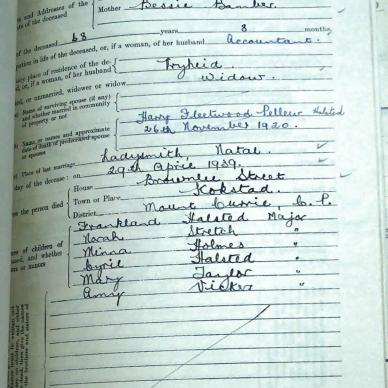 Names and Addresses of the
Parents of the deceased
Mother Bessie Bamber.
of the deceased 68 years 8 months
Occupation in life of the deceased, or, if a woman, of her husband Accountant.
Ordinary place of residence of the de-
ceased, or, if a woman, of her husband Vryheid
Married, or unmarried, widower or widow Widow.
(a) Name of surviving spouse (if any)
and whether married in community
of property or not
(b) Name or names and approximate
date of death of predeceased spouse
or spouses
Harry Fleetwood Pellew Halsted
26th November 1920.
(c) Place of last marriage Ladysmith, Natal.
day of the decease: on 29th April 1939.
House Brownlee Street
the person died Town or Place Kokstad.
District Mount Currie, C.P.
of children of
deceased, and whether
or minors
Frankland Halsted Major
Norah Stretch "
Minna Holmes "
Cyril Halsted "
Mary Taylor "
Amy Vicker "